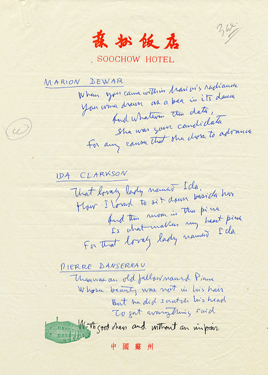 蘇州飯店
SOOCHOW HOTEL
MARION DEWAR
When you came within Marion's radiance
You were drawn as a bee in its dance
And whatever the date,
She was your candidate
For any cause that she chose to advance
IDA CLARKSON
That lovely lady named Ida
How I loved to sit down beside her
And the moon in the pine
Is what makes my heart pine
For that lovely lady named Ida
PIERRE DANSEREAU
There was an old fellow named Pierre
Whose beauty was not in his hair
But he did scratch his head
To get everything said
With good sense and without an
中國蘇州